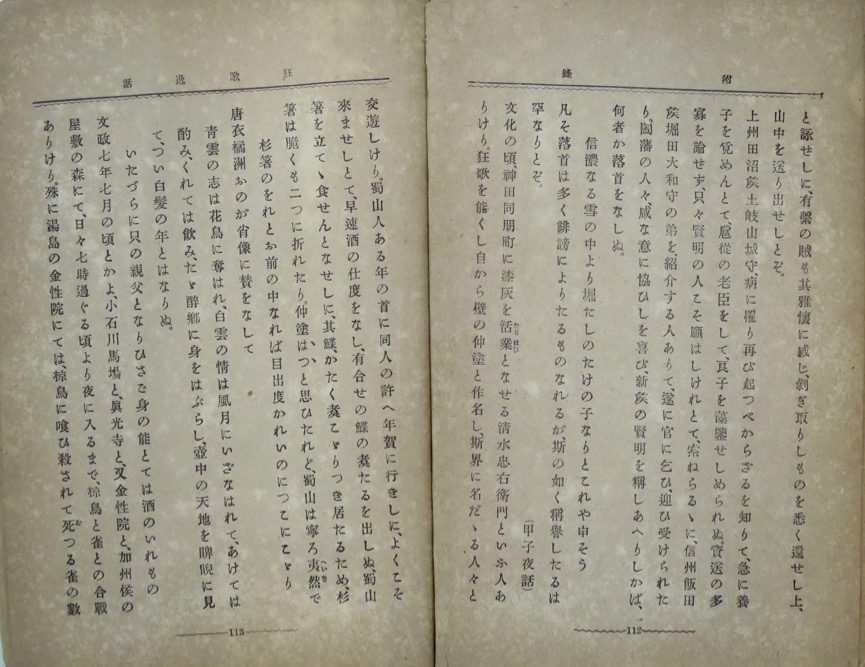 附錄
と詠せしに、有繫の賊も其雅懷に感じ、剝ぎ取りしものを悉く還せし上、
山中を送り出せしとぞ。
上州田沼矦土岐山城守、病に罹り再び起つべからざるを知りて、急に養
子を覓めんとて、扈從の老臣をして、良子を藻鑒せしめられぬ。資送の多
寡を論せず、只々賢明の人こそ願はしけれとて、索ねらるゝに、信州飯田
矦堀田大和守の弟を、紹介する人ありて、遂に官に乞ひ、迎ひ受けられた
り。闔藩の人々、咸な意に協ひしを喜び、新矦の賢明を稱しあへりしかば、
何者か落首をなしぬ。
信濃なる雪の中より堀たしのたけの子なりとこれや申そう
凡そ落首は多く誹謗によりたるものなれるが、斯の如く稱譽したるは
罕なりとぞ。
(甲子夜話)
文化の頃、神田同朋町に漆灰を活業となせる清水忠右衛門といふ人あ
りけり。狂歌を能くし自から壁の仲塗と作名し、斯界に名だゝる人々と
112
狂歌逸話
交遊しけり。蜀山人ある年の首に同人の許へ年賀に行きしに、よくこそ
來ませしとて、早速酒の仕度をなし、有合せの鰈の煑たるを出しぬ、蜀山
箸を立てゝ食せんとなせしに、其鰈かたく煑こゞりつき居たるため、杉
箸は脆くも二つに折れたり。仲塗は、つと思ひたれど、蜀山は寧ろ夷然で
杉箸のをれとお前の中なれば目出度かれいのにつこにこゞり
唐衣橘洲おのが肖像に賛をなして
青雲の志は花鳥に奪はれ、白雲の情は風月にいざなはれて、あけては
酌み、くれては飮み、たゞ醉鄕に身をはふらし、壺中の天地を睥睨に見
て、つい白髮の年とはなりぬ。
いたづらに只の親父となりひさご身の能とては酒のいれもの
文政七年七月の頃とかよ、小石川馬場と、眞光寺と、又金性院と、加州侯の
屋敷の森にて、日々七時過ぐる頃より夜に入るまで、椋鳥と雀との合戰
ありけり。殊に湯島の金性院にては、椋鳥に喰ひ殺されて死つる雀の數
113